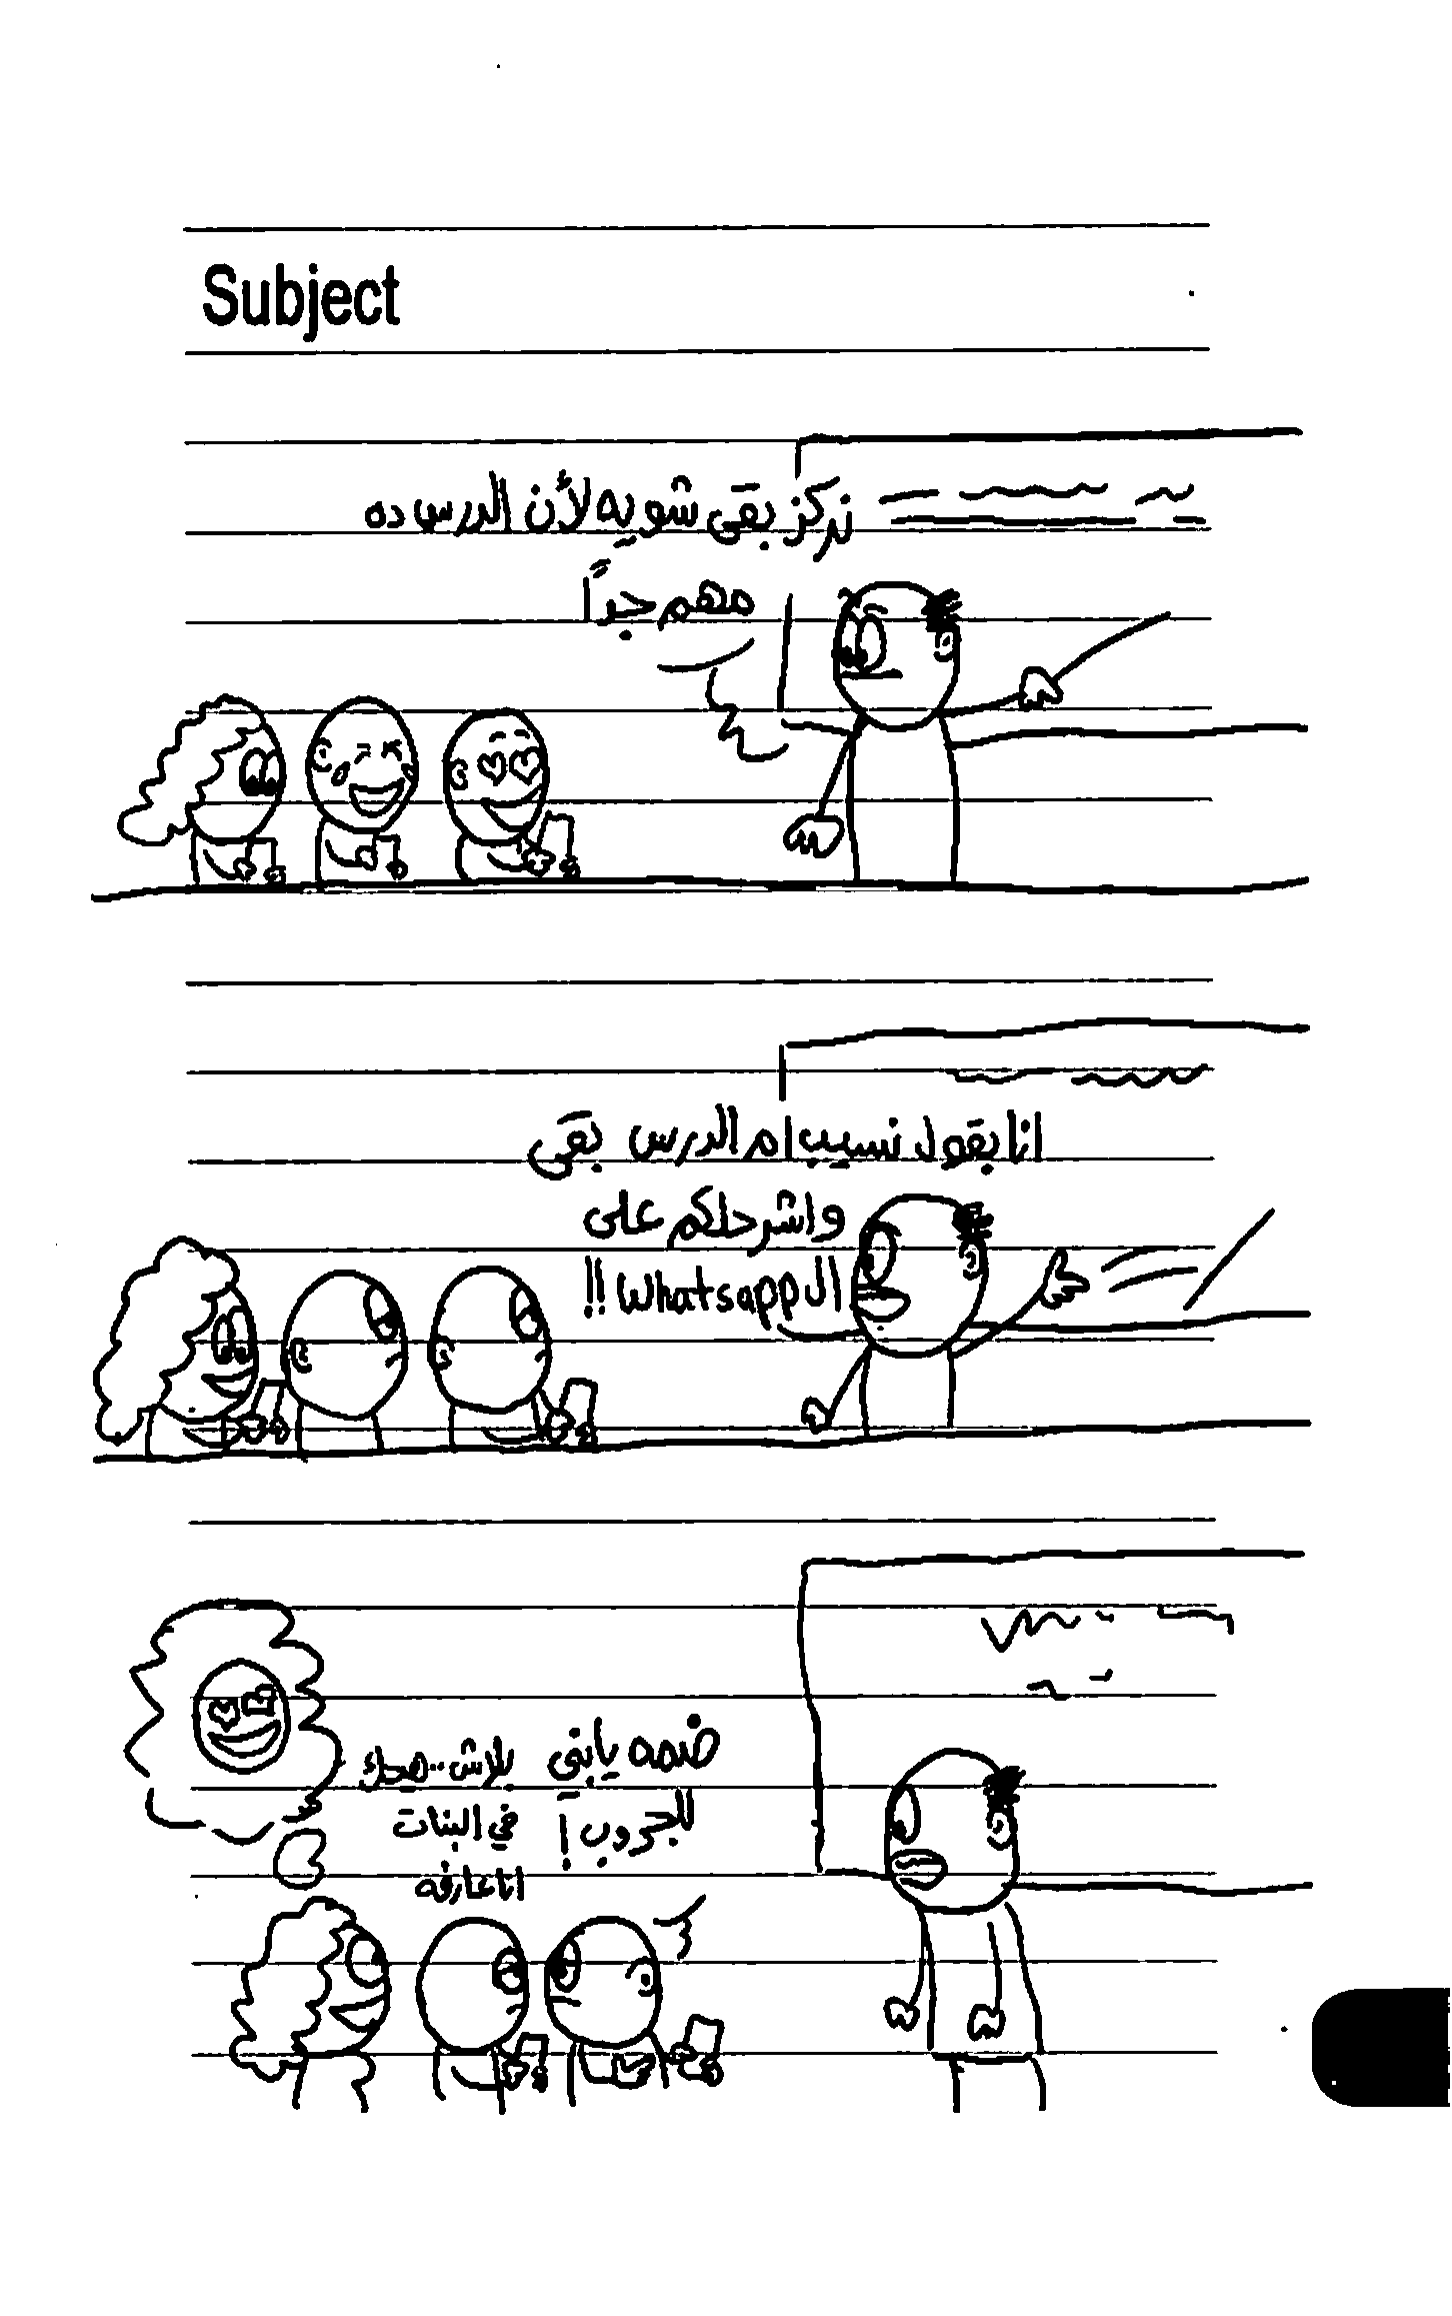 Subject
نركز بقى شويه لأن الدرس ده
مهم جداً
انا بقول نسيب ام الدرس بقى
واشرحلكم على
ال whatsapp !!
ضمه يابني
للجروب !
بلاش.. هيحك
في البنات
انا عارفه